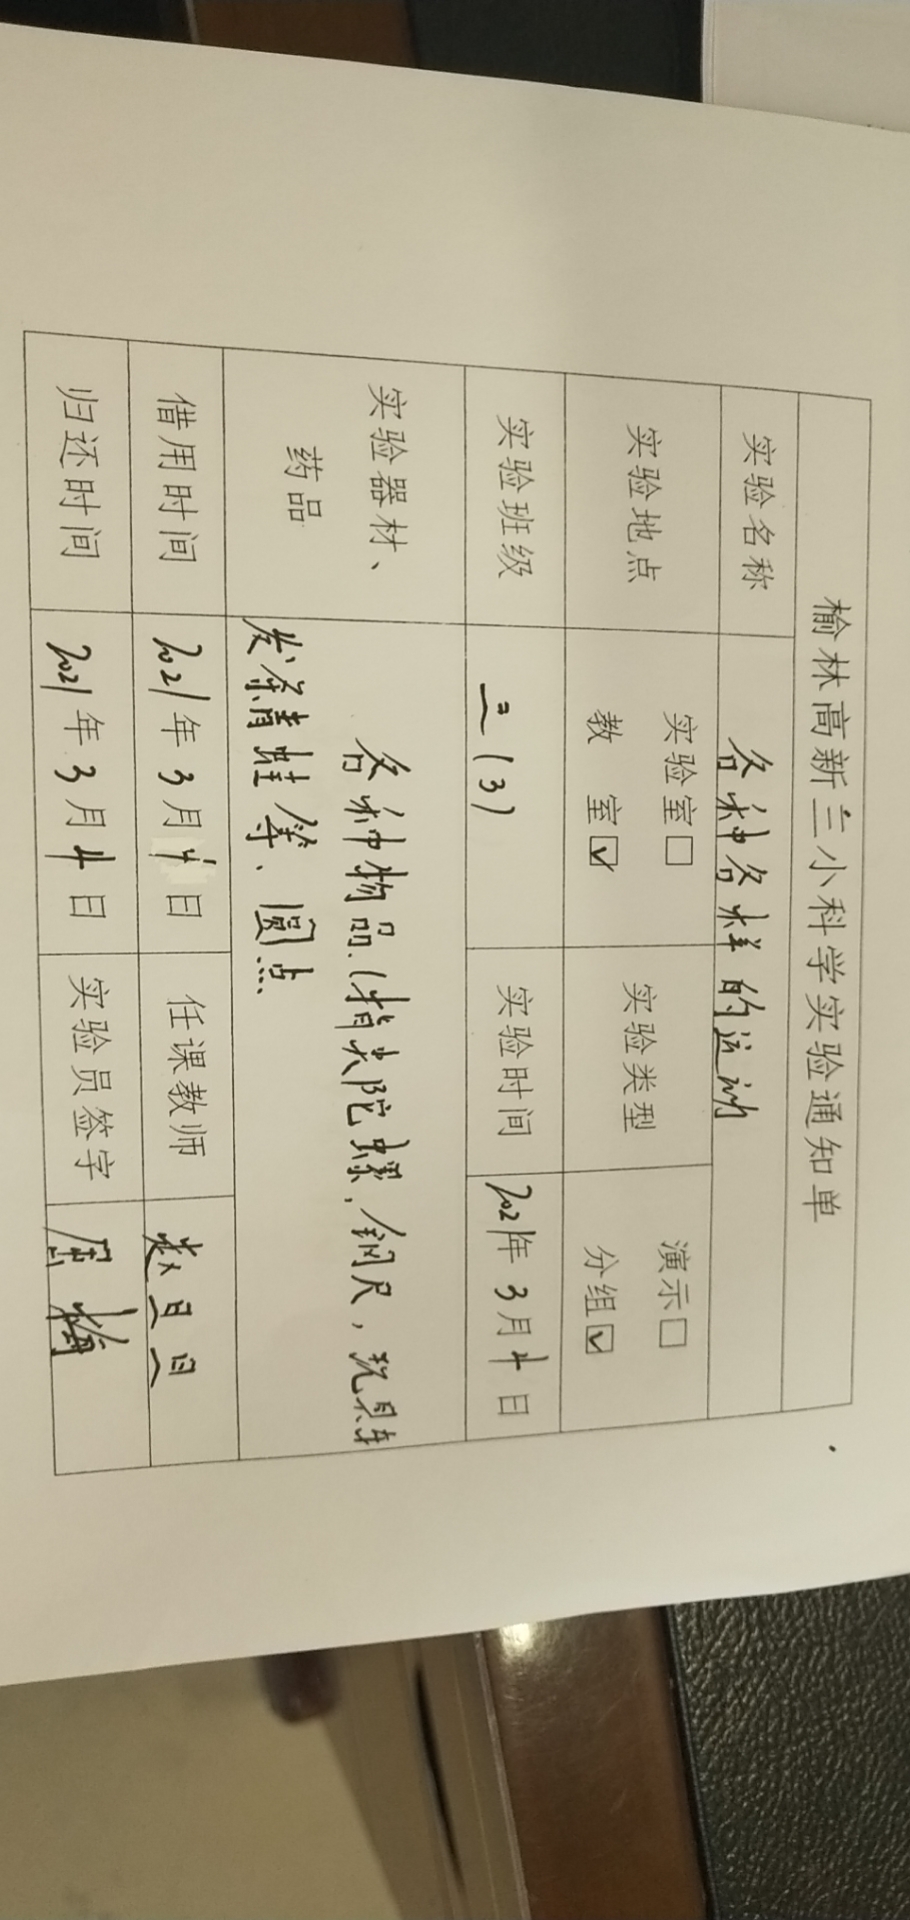 榆林高新三小科学实验通知单
实验名称 各种各样的运动
实验地点 实验室□ 教 室☑ 实验类型 演示□ 分组☑
实验班级 三(3) 实验时间 2021年3月 日
实验器材、药品 各种物品.(指尖陀螺、钢尺,玩具车
发条青蛙等、圆点
借用时间 2021年3月 日 任课教师
归还时间 2021年3月 日 实验员签字